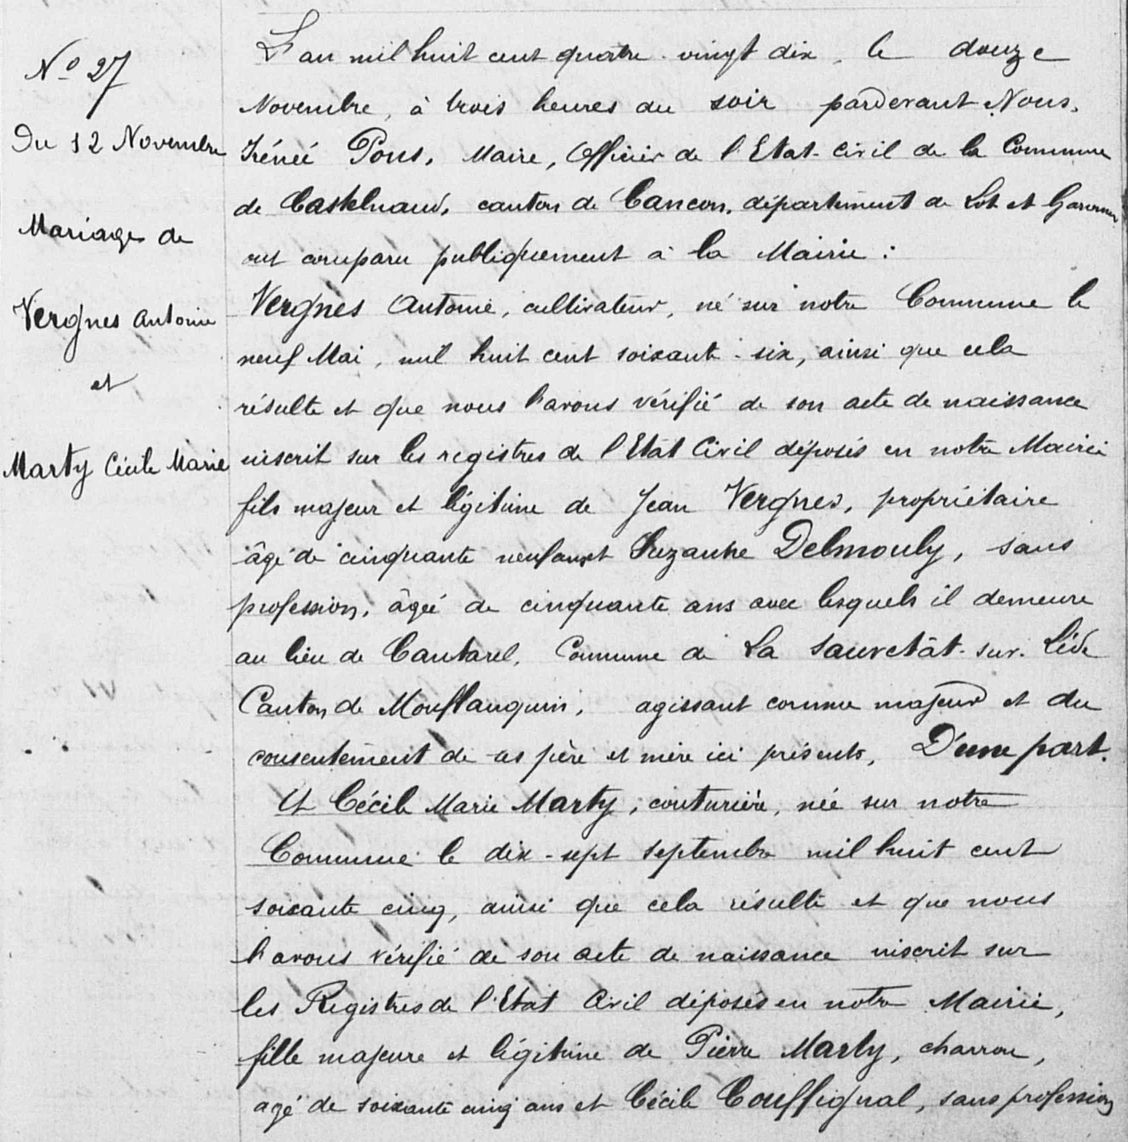 N° 27
Du 12 Novembre
Mariage de
Vergnes Antoine
et
Marty Cécile Marie
L'an mil huit cent quatre-vingt dix, le douze
Novembre, à trois heures du soir pardevant Nous,
Irénée Pons, Maire, Officier de l'Etat-civil de la Commune
de Castelnaud, canton de Cancon, département de Lot et Garonne
ont comparu publiquement à la Mairie :
Vergnes Antoine, cultivateur, né sur notre Commune le
neuf Mai, mil huit cent soixant-six, ainsi que cela
résulte et que nous l'avons vérifié de son acte de naissance
inscrit sur les registres de l'Etat Civil déposés en notre Mairie
fils majeur et légitime de Jean Vergnes, propriétaire
âgé de cinquante neuf ans et Suzanne Delmouly, sans
profession, âgée de cinquante ans avec lesquels il demeure
au lieu de Cantarel, Commune de La Sauvetât-sur-Lède
Canton de Monflanquin, agissant comme majeur et du
consentement de ses père et mère ici présents, D'une part.
Et Cécile Marie Marty, couturière, née sur notre
Commune le dix-sept septembre mil huit cent
soixante cinq, ainsi que cela résulte et que nous
l'avons vérifié de son acte de naissance inscrit sur
les Registres de l'Etat Civil déposés en notre Mairie,
fille majeure et légitime de Pierre Marty, charron,
agé de soixante cinq ans et Cécile Couffignal, sans profession